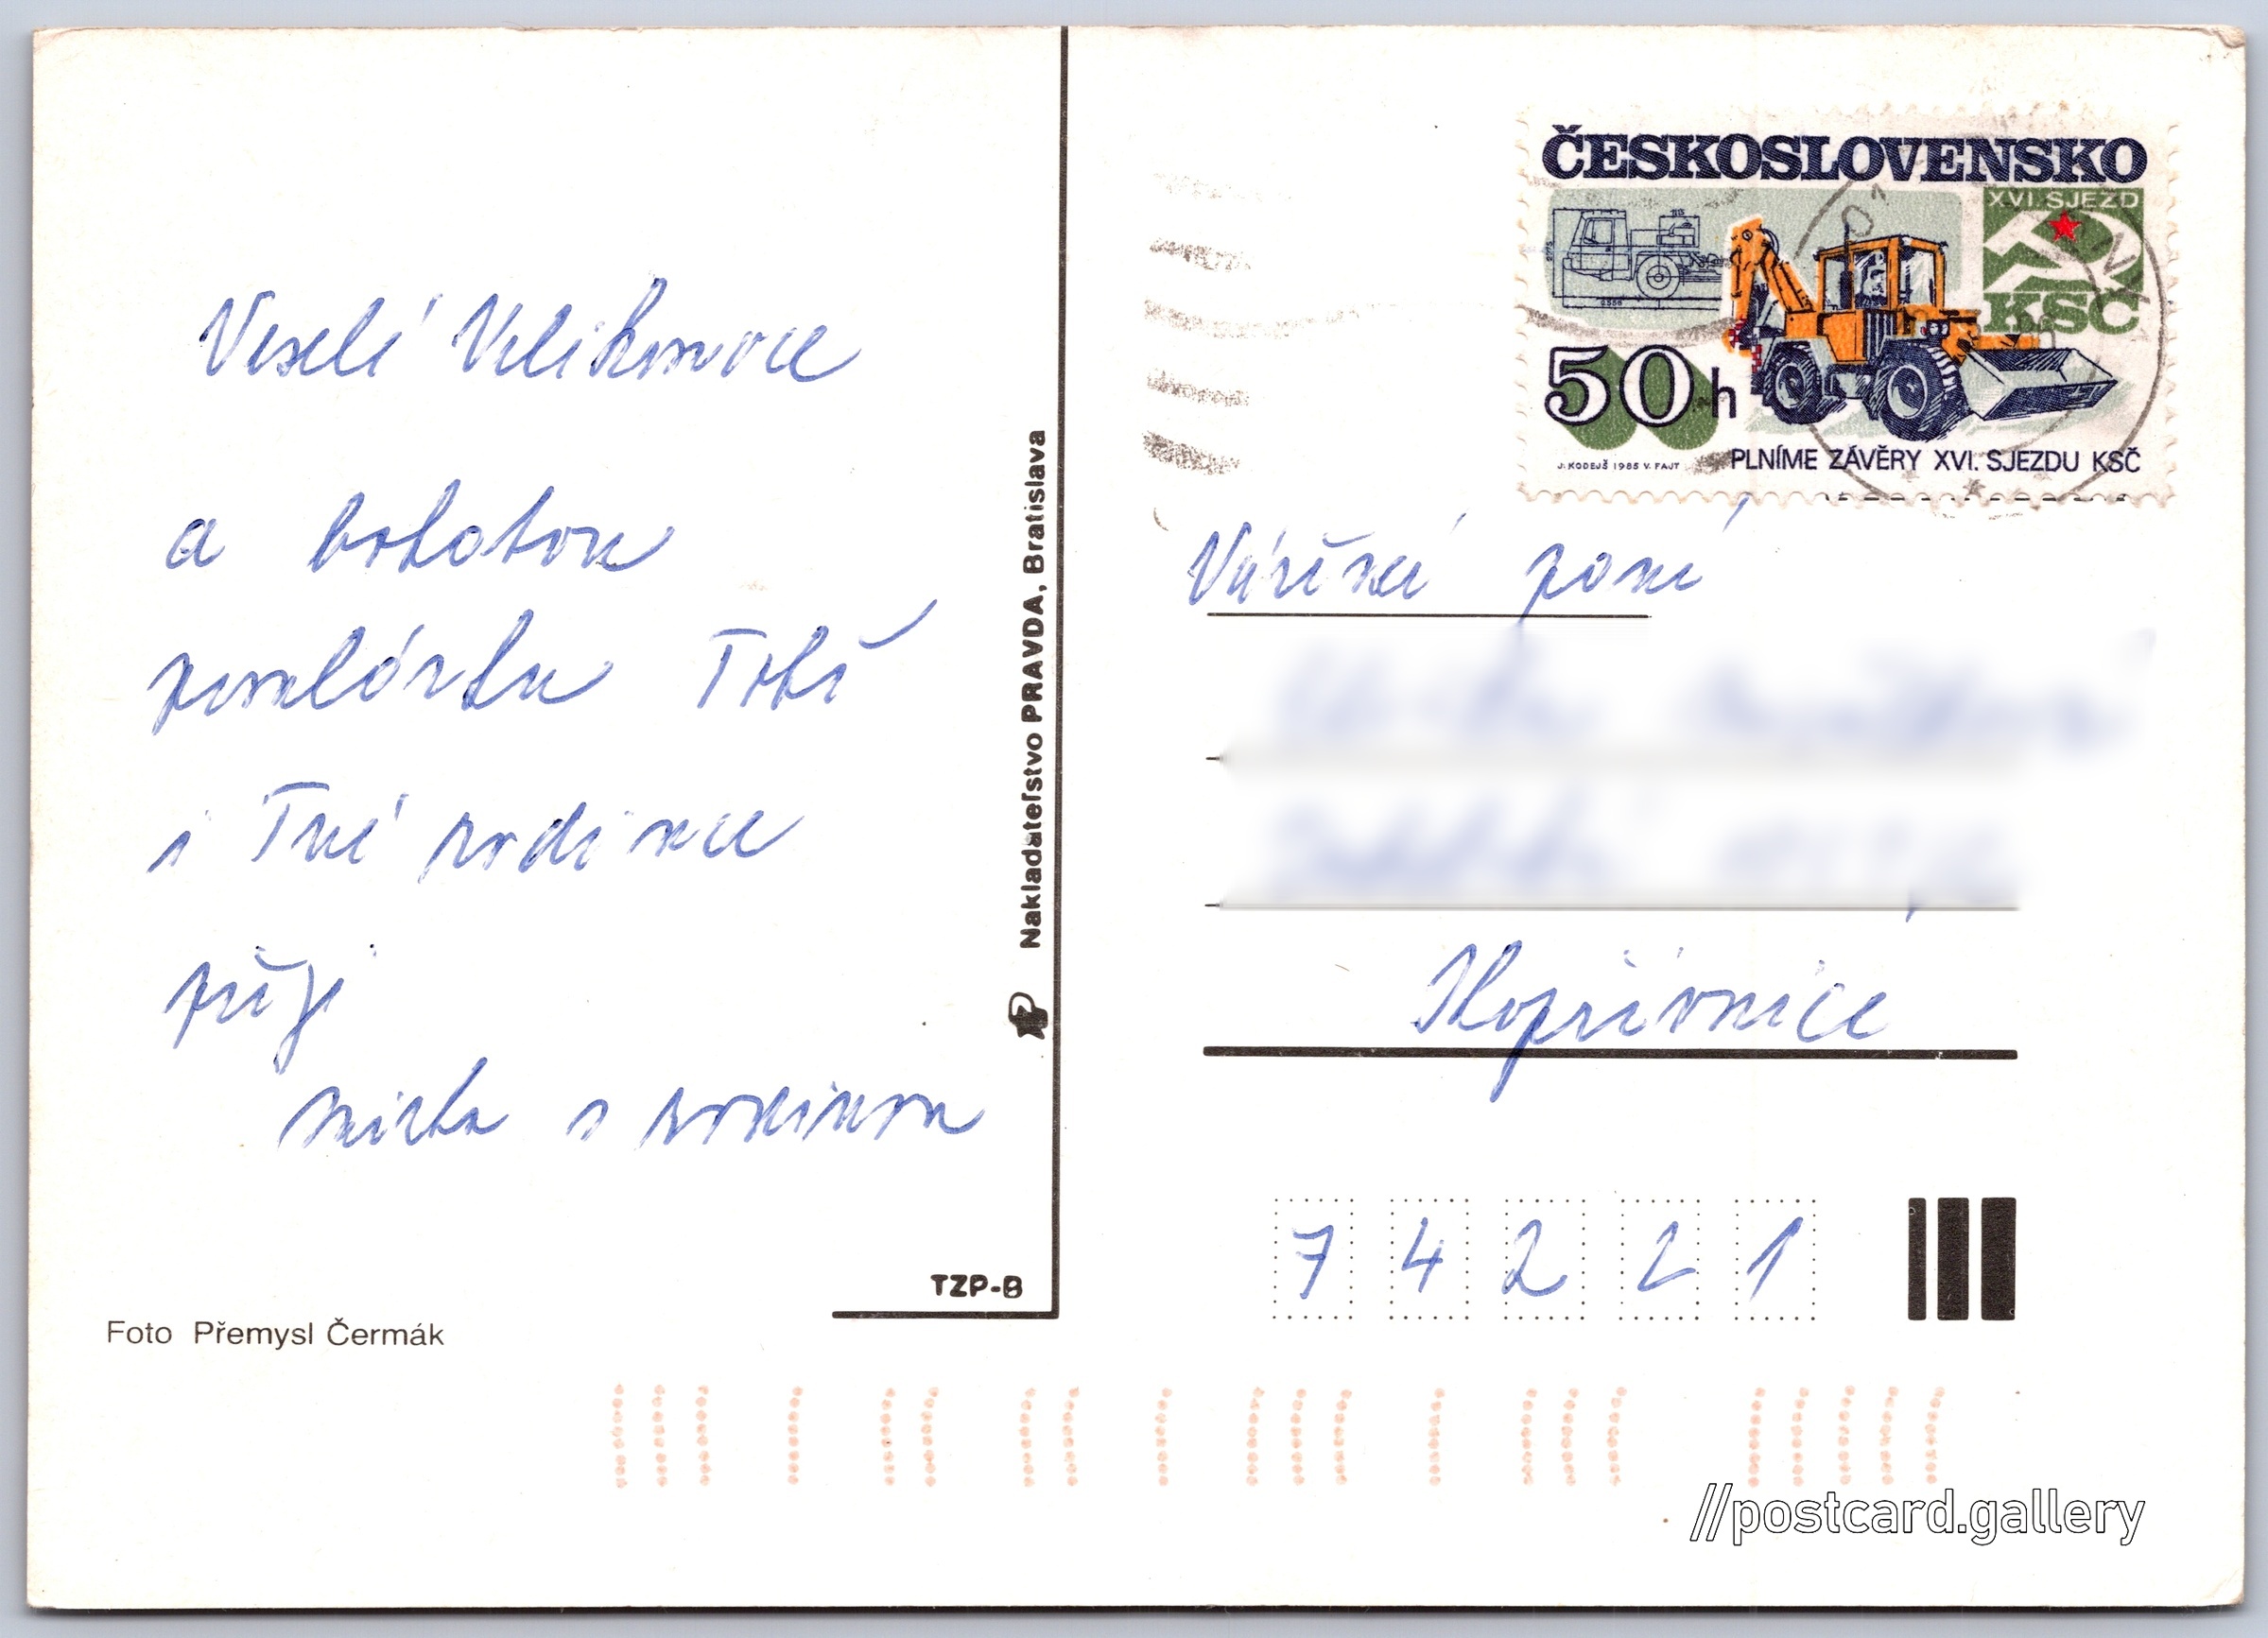 Veselé Velikonoce
a bohatou
pomlázku Tobě
i Tvé rodince
přeji
Mirka s rodinou
Foto Přemysl Čermák
TZP-B
Nakladateľstvo PRAVDA, Bratislava
ČESKOSLOVENSKO
XVI. SJEZD
KSČ
50 h
J. KODEJŠ 1985 V. FAJT
PLNÍME ZÁVĚRY XVI. SJEZDU KSČ
Vážená paní
Kopřivnice
74221
//postcard.gallery